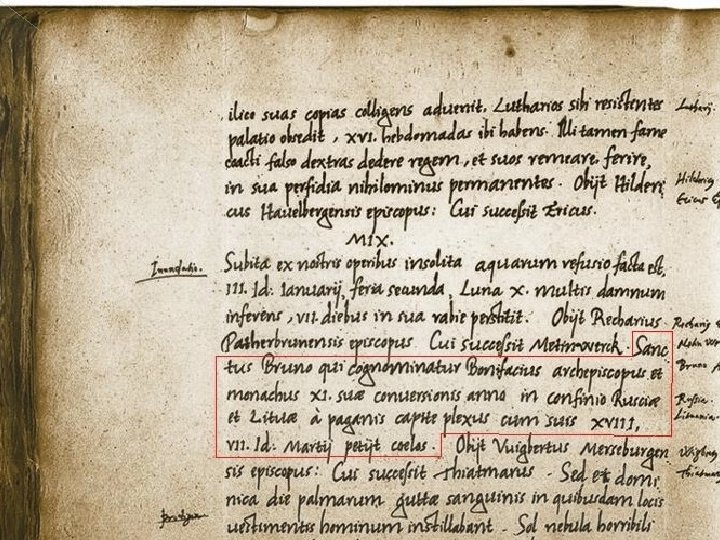 ilico suas copias colligens aduenit. Lutharios sibi resistentes
palatio obsedit, XVI. hebdomadas ibi habens. Illi tamen fame
coacti falso dextras dedere regem, et suos remeare. ferire,
in sua perfidia nihilominus permanentes. Obijt Hilderi
cus Hauelbergensis episcopus: Cui successit Ericus.
MIX.
Inundatio. Subita ex nostris operibus insolita aquarum refusio facta est.
III. Id: Ianuarij, feria secunda, Luna X. multis damnum
inferens, VII. diebus in sua rabie perstitit. Obijt Recharius
Patherbrunensis episcopus Cui successit Meinwerck. Sanc
tus Bruno qui cognominatur Bonifacius archepiscopus et
monachus XI. suæ conuersionis anno in confinio Rusciæ
et Lituæ à paganis capite plexus cum suis XVIII,
VII. Id: Martij petijt coelos. Obijt Vuigbertus Merseburgen
sis episcopus: Cui successit Thiatmarus. Sed et domi
nica die palmarum guttæ sanguinis in quibusdam locis
uestimentis hominum instillabant. Sol nebula horribili